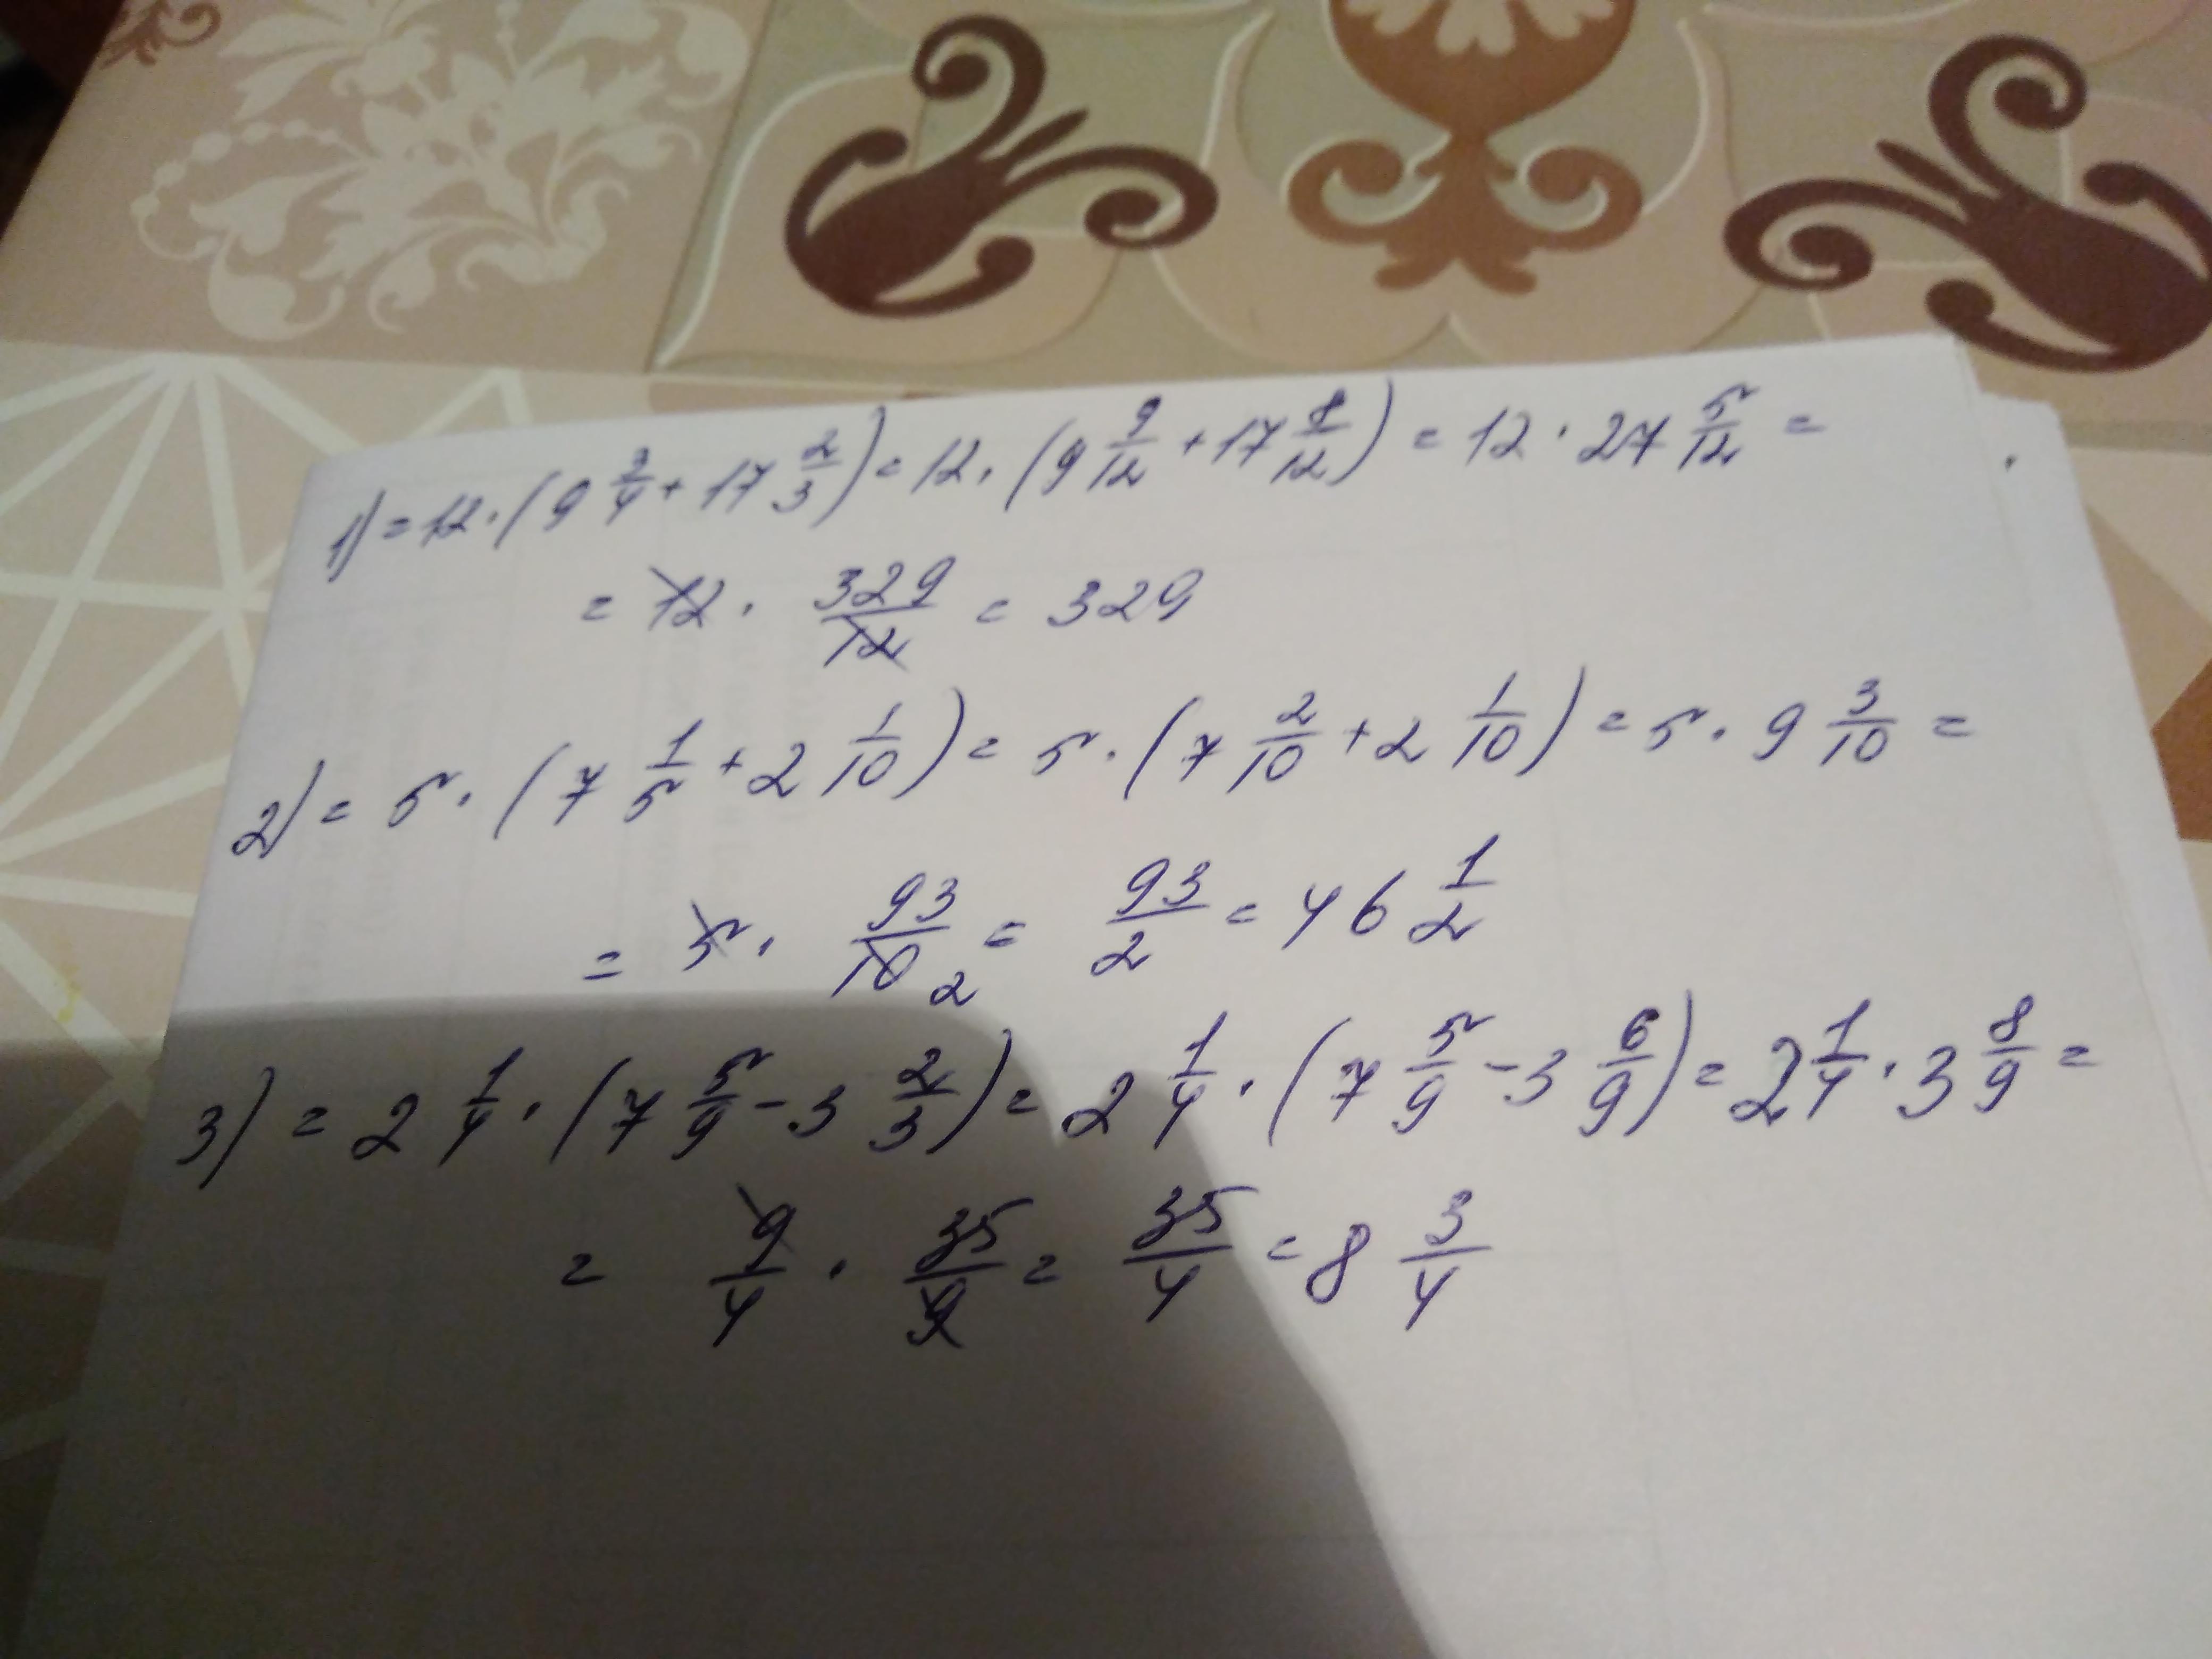 1) = 12 · (9 3/4 + 17 2/3) = 12 · (9 9/12 + 17 8/12) = 12 · 27 5/12 =
= 12 · 329/12 = 329
2) = 5 · (7 1/5 + 2 1/10) = 5 · (7 2/10 + 2 1/10) = 5 · 9 3/10 =
= 5 · 93/10 2 = 93/2 = 46 1/2
3) = 2 1/4 · (7 5/9 - 3 2/3) = 2 1/4 · (7 5/9 - 3 6/9) = 2 1/4 · 3 8/9 =
= 9/4 · 35/9 = 35/4 = 8 3/4